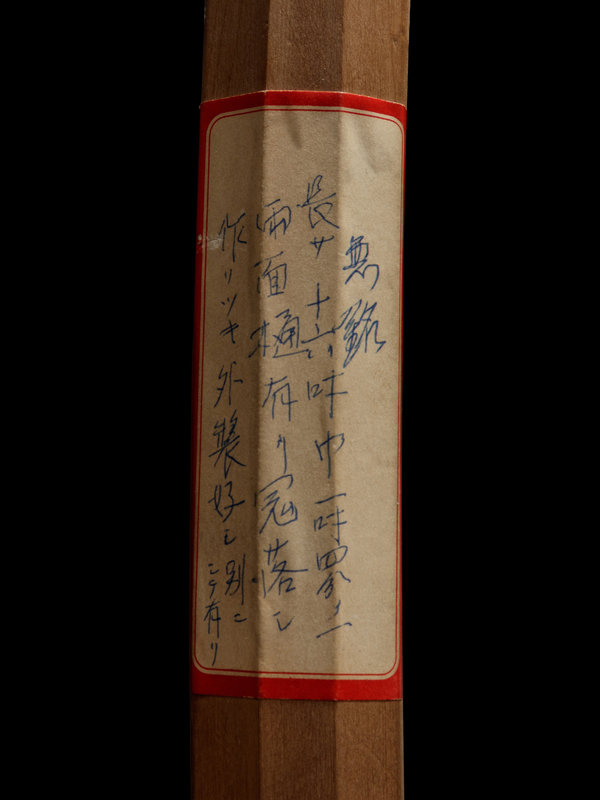 無銘
長サ 十六吋 巾 一吋四分ノ一
両面樋有リ冠落し
作リツキ外装好し別ニ
有リ